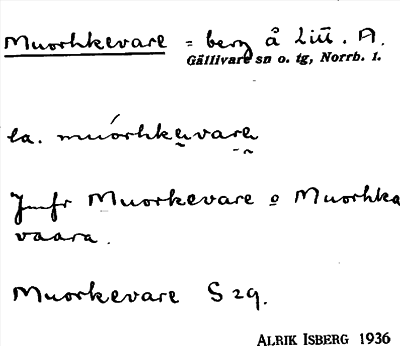 Muorhkevare = berg å Lit. A.
Gällivare sn o. tg, Norrb. l.
la. muórhkevare
Jmfr Muorkevare o Muorhka
vaara.
Muorkevare S 29.
ALRIK ISBERG 1936